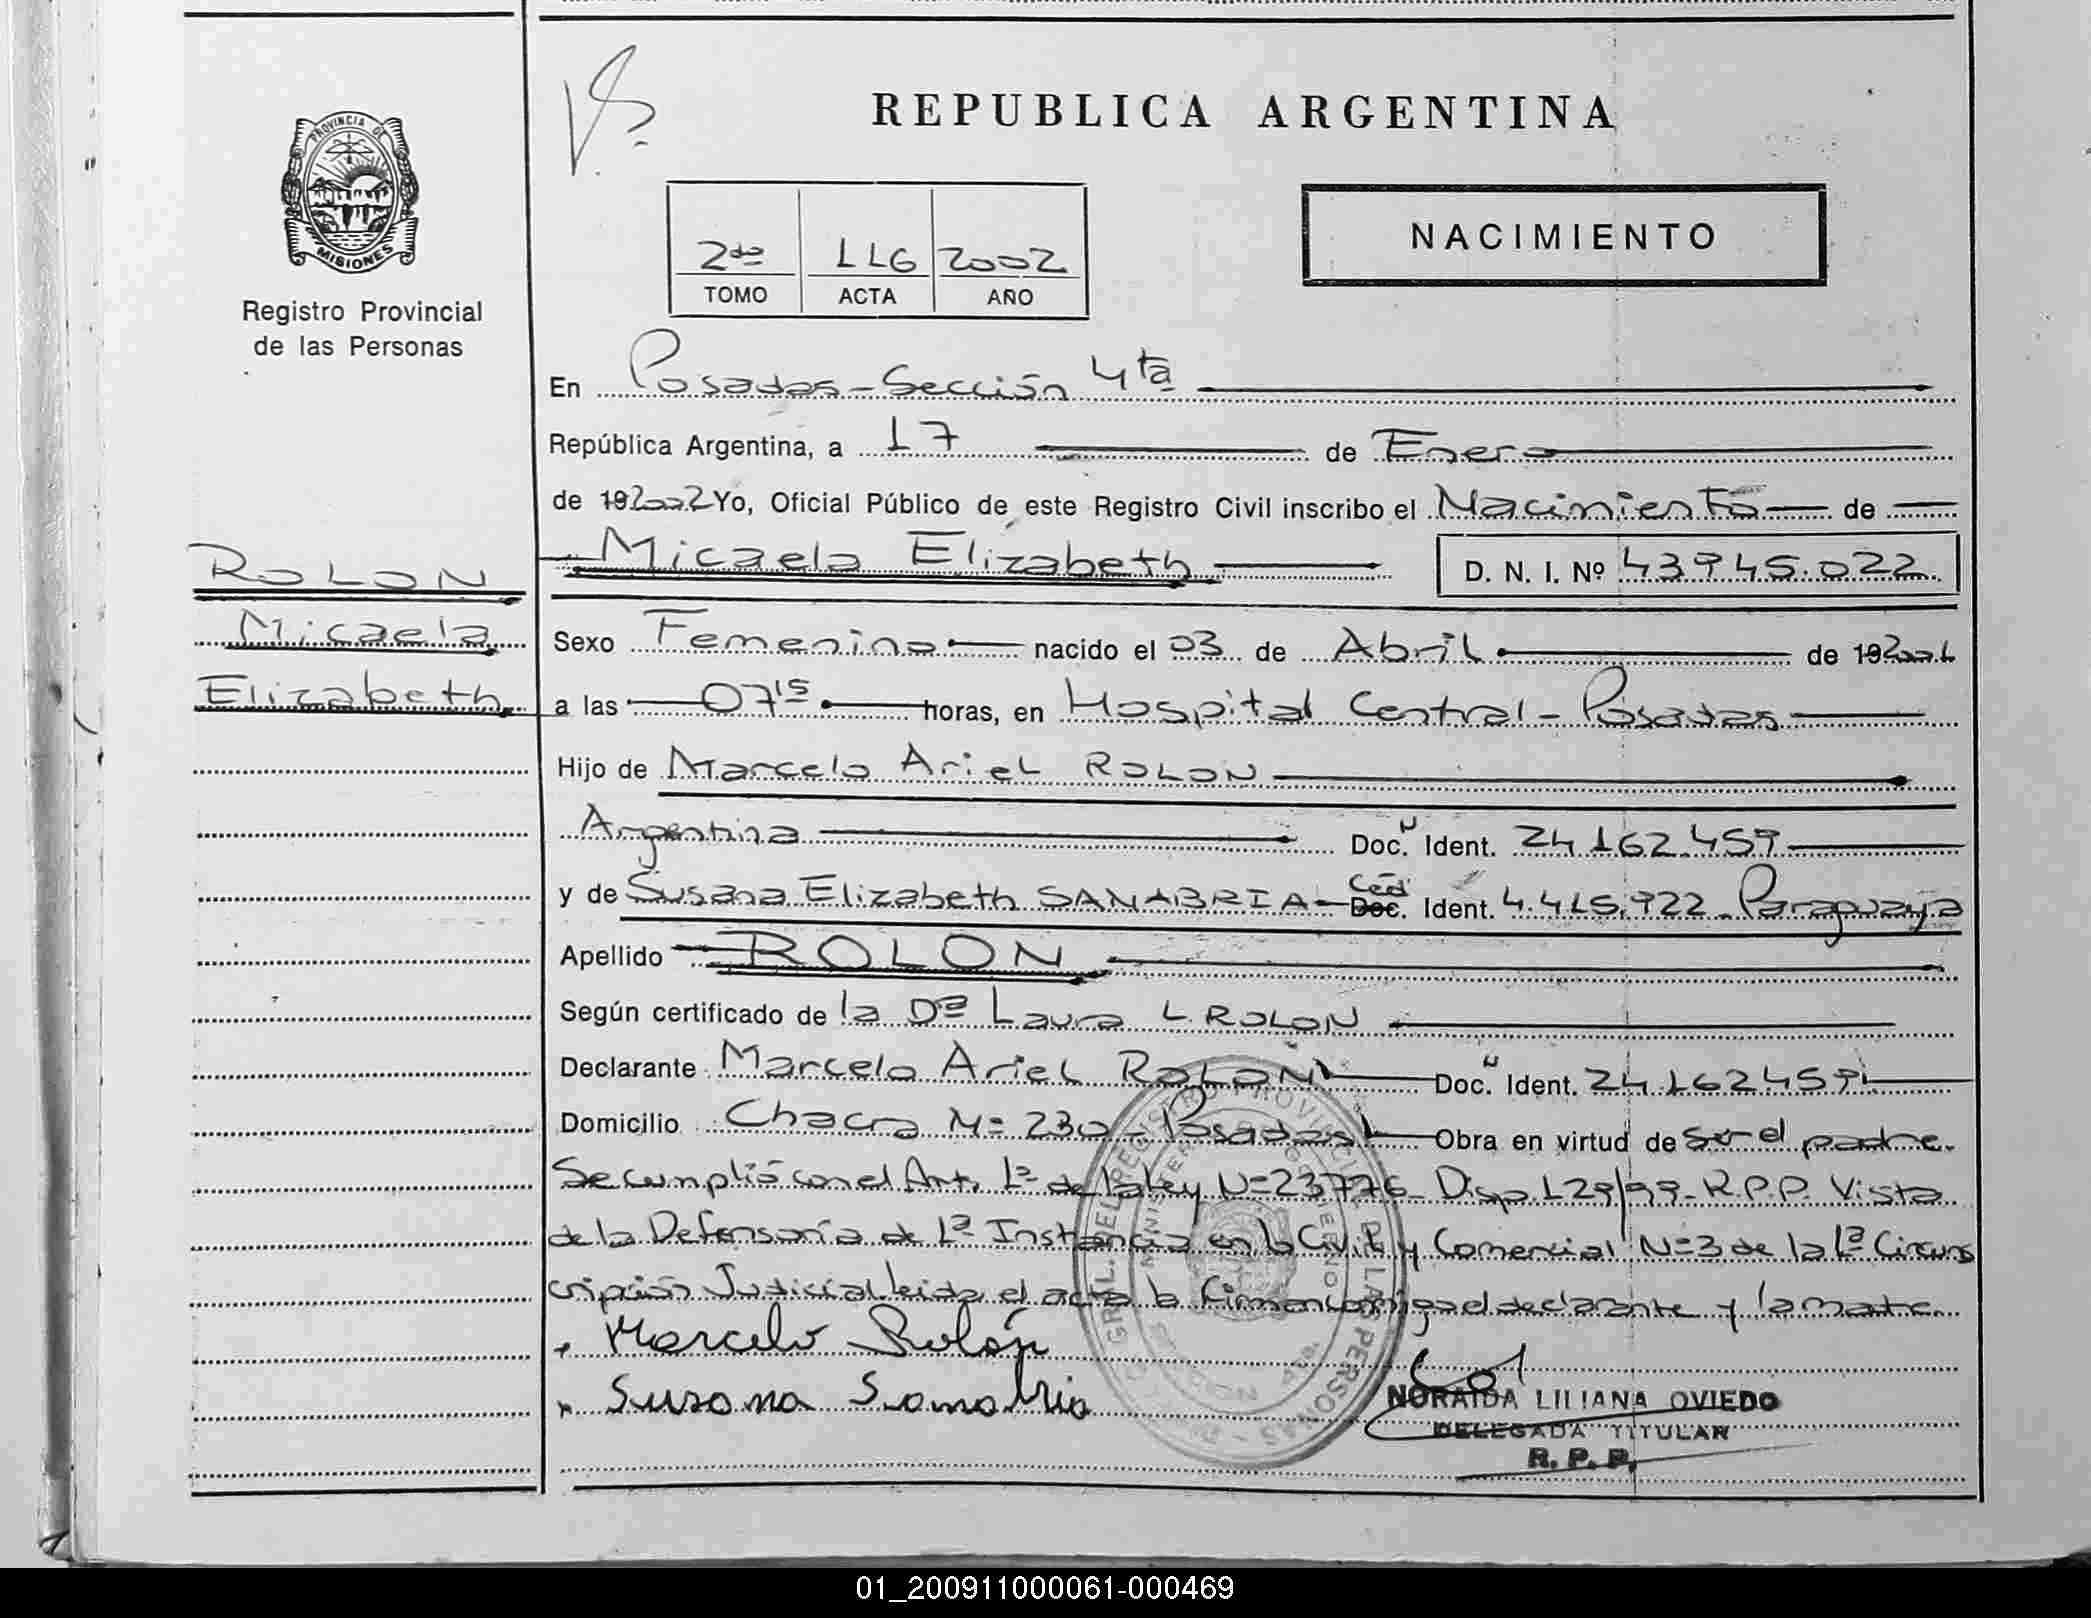 REPUBLICA ARGENTINA
PROVINCIA DE
MISIONES
Registro Provincial
de las Personas
2do LL6 2002
TOMO ACTA AÑO
NACIMIENTO
En Posadas-Sección 4ta
República Argentina, a 17 de Enero
de 192002 Yo, Oficial Público de este Registro Civil inscribo el Nacimiento de
Micaela Elizabeth D. N. I. Nº 43945.022
ROLON
Micaela
Elizabeth
Sexo Femenino nacido el 03 de Abril de 19200L
a las 07 15 horas, en Hospital Central-Posadas
Hijo de Marcelo Ariel ROLON
Argentina Doc. N Ident. 24.162.459
y de Susana Elizabeth SANABRIA- Céd Doc. Ident. 4.415.922- Paraguaya
Apellido ROLON
Según certificado de la Dra Laura L ROLON
Declarante Marcelo Ariel ROLON Doc. N Ident. 24.162459
Domicilio Chacra Nº 230- Posadas Obra en virtud de ser el padre.
Se cumplió con el Art. 1º de la ley Nº 23776- Disp. 129/99- R.P.P. Vista
de la Defensoría de 1ª Instancia en lo Civil y Comercial Nº3 de la 1ª Circuns
cripción Judicial leida el acta la firman conmigo el declarante y la madre.
Marcelo Rolón
Susana Sanabria
NORAIDA LILIANA OVIEDO
DELEGADA TITULAR
R. P. P.
01_200911000061-000469